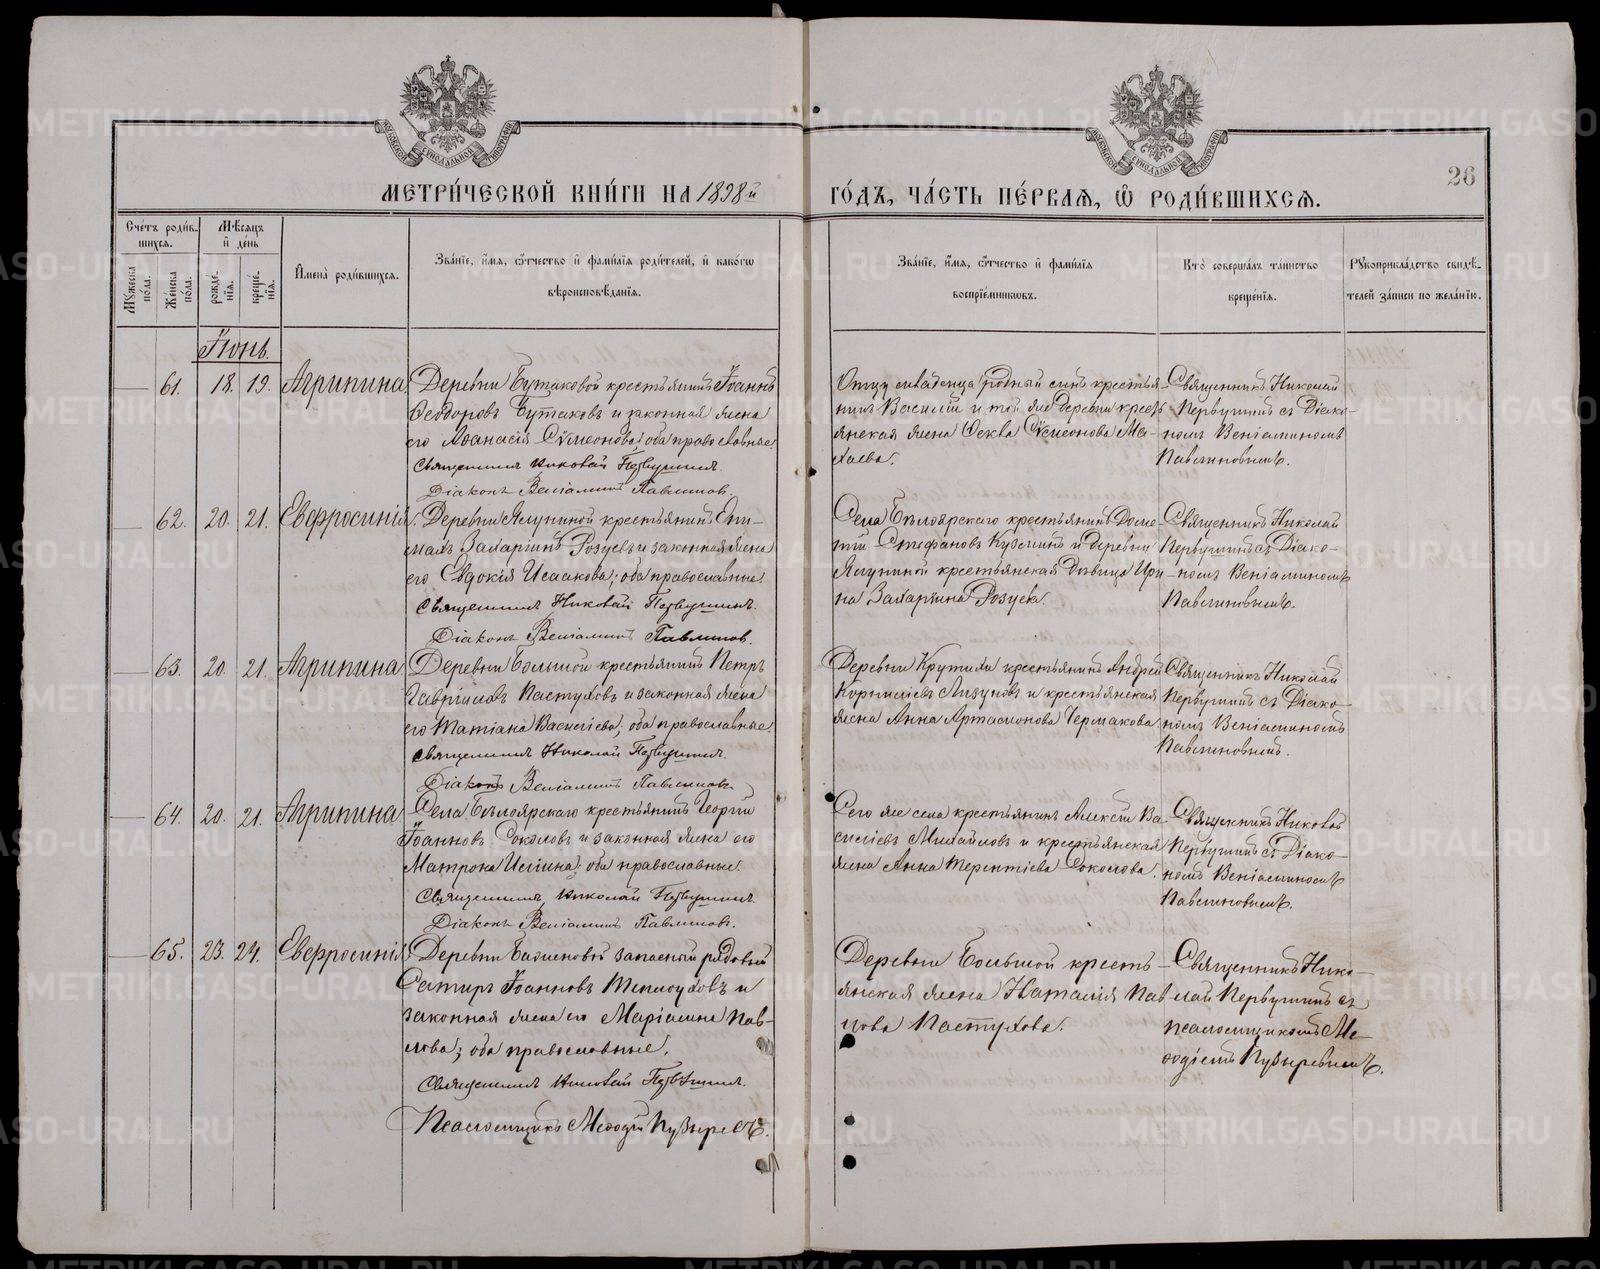 METRIKI.GASO-URAL.RU
26
МЕТРИ́ЧЕСКОЙ КНИ́ГИ НА 1898й
ГО́ДЪ, ЧА́СТЬ ПЕ́РВАѦ, Ѡ҆ РОДИ́ВШИХСѦ.
Сче́тъ роди́в-
шихсѧ.
Мѣ́сѧцъ
и҆ де́нь
Мꙋ́жеска по́ла.
Же́нска по́ла.
рожде́-
нїѧ.
креще́-
нїѧ.
И҆мена̀ роди́вшихсѧ.
Зва́нїе, и҆́мѧ, ѻ҆́тчество и҆ фами́лїѧ роди́телей, и҆ како́гѡ
вѣроисповѣ́данїѧ.
Зва́нїе, и҆́мѧ, ѻ҆́тчество и҆ фами́лїѧ
воспрїе́мникѡвъ.
Кто̀ соверша́лъ та́инство
креще́нїѧ.
Рꙋкоприкла́дство свидѣ́-
телей за́писи по жела́нїю.
Іюнь.
61. 18. 19. Агрипина
Деревни Бутаковой крестьянинъ Іоаннъ
Ѳеодоровъ Бутаковъ и законная жена
его Аѳанасія Сѵмеонова; оба православные.
Священникъ Николай Первушинъ.
Діаконъ Веніаминъ Павлиновъ.
родный сынъ крестья-
нинъ Василій и той же деревни кресть-
янская жена Ѳекла Сѵмеонова
Священникъ Николай
Первушинъ съ Діако-
номъ Веніаминомъ
Павлиновымъ.
62. 20. 21. Евфросинія.
Деревни Ялуниной крестьянинъ
Захаринъ Розуевъ и законная жена
его Евдокія Исаакова; оба православные.
Священникъ Николай Первушинъ.
Діаконъ Веніаминъ Павлиновъ.
Села Бѣлоярскаго крестьянинъ
Стефановъ Кузминъ и деревни
Ялуниной крестьянская дѣвица Ири-
на Захарiина Розуева.
Священникъ Николай
Первушинъ съ Діако-
номъ Веніаминомъ
Павлиновымъ.
63. 20. 21. Агрипина
Деревни Большой крестьянинъ Петръ
Гавріиловъ Пастуховъ и законная жена
его Татіана Васильева; оба православные.
Священникъ Николай Первушинъ.
Діаконъ Веніаминъ Павлиновъ.
Деревни Крутихи крестьянинъ Андрей
Корниліевъ Лизуновъ и крестьянская
жена Анна Артамонова Чермакова
Священникъ Николай
Первушинъ съ Діако-
номъ Веніаминомъ
Павлиновымъ.
64. 20. 21. Агрипина
Села Бѣлоярскаго крестьянинъ Георгій
Іоанновъ Соколовъ и законная жена его
Матрона Иліина; оба православные.
Священникъ Николай Первушинъ.
Діаконъ Веніаминъ Павлиновъ.
Сего же села крестьянинъ Алексій Ва-
силіевъ Михайловъ и крестьянская
жена Анна Терентіева Соколова.
Священникъ Николай
Первушинъ съ Діако-
номъ Веніаминомъ
Павлиновымъ.
65. 23. 24. Евфросинія
Деревни Баженовой запасный рядовый
Сатиръ Іоанновъ Теплоуховъ и
законная жена его Маріамна Пав-
лова; оба православные.
Священникъ Николай Первушинъ.
Псаломщикъ Меѳодій Пузыревъ.
Деревни Большой кресть-
янская жена Наталія Пав-
лова Пастухова.
Священникъ Нико-
лай Первушинъ съ
псаломщикомъ Ме-
ѳодіемъ Пузыревымъ.